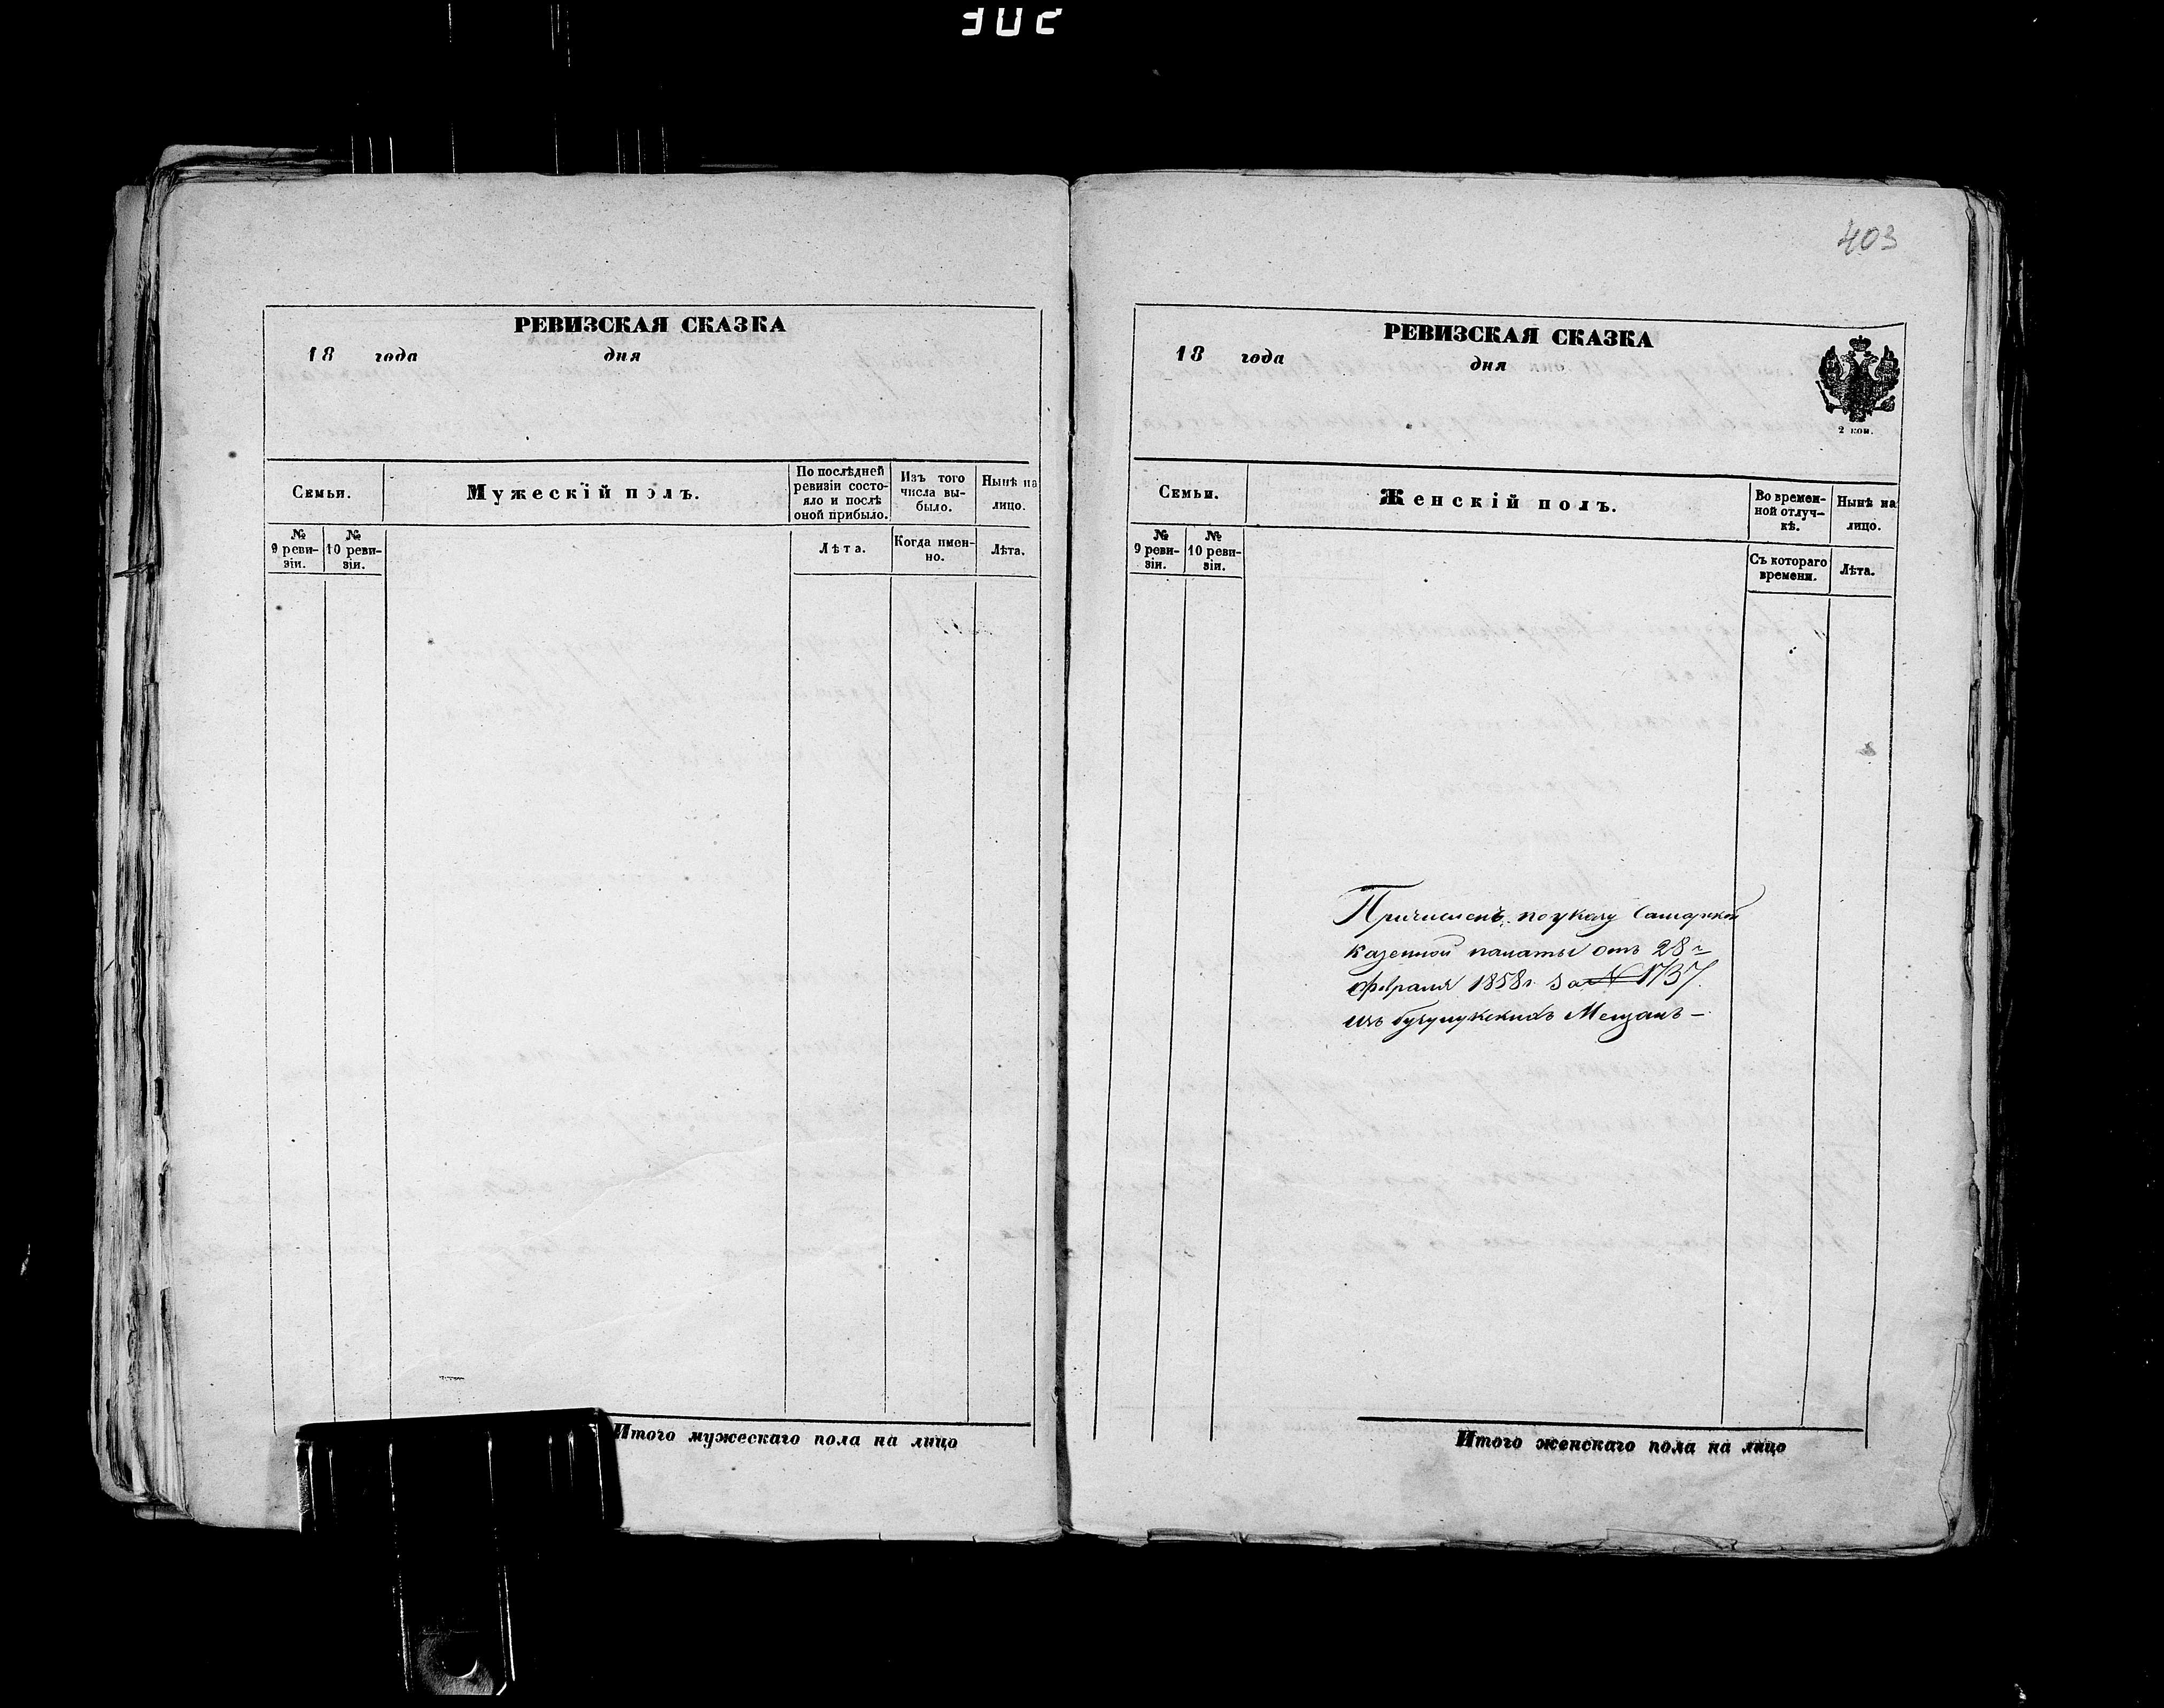 403
РЕВИЗСКАЯ СКАЗКА
18 года дня
Семьи.
Мужескій полъ.
По послѣдней ревизіи состо-
яло и послѣ
оной прибыло.
Изъ того
числа вы-
было.
Нынѣ на
лицо.
№
9 реви-
зіи.
№
10 реви-
зіи.
Лѣта.
Когда имен-
но.
Лѣта.
Итого мужескаго пола на лицо
РЕВИЗСКАЯ СКАЗКА
18 года дня
2 коп.
Семьи.
Женскій полъ.
Во времен-
ной отлуч-
кѣ.
Нынѣ на
лицо.
№
9 реви-
зіи.
№
10 реви-
зіи.
Съ котораго
времени.
Лѣта.
Причисленъ по указу Самарской
казенной палаты отъ 28 г
февраля 1858 г. за № 1737.
изъ бузулукскихъ Мещанъ –
Итого женскаго пола на лицо